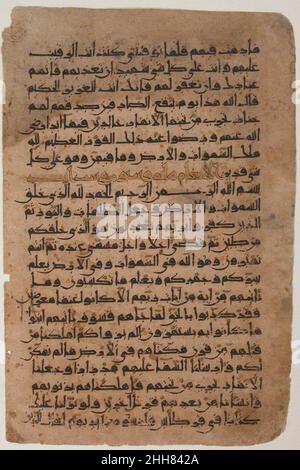 ما دمت فيهم فلما توفيتني كنت انت الرقيب
عليهم وانت على كل شي شهيد ان تعذبهم فانهم
عبادك وان تغفر لهم فانك انت العزيز الحكيم
قال الله هذا يوم ينفع الصادقين صدقهم لهم
جنات تجري من تحتها الانهار خالدين فيها ابدا رضي
الله عنهم ورضوا عنه ذلك الفوز العظيم لله
ملك السموات والارض وما فيهن وهو على كل
شي قدير
بسم الله الرحمن الرحيم الحمد لله الذي خلق
السموات والارض وجعل الظلمات والنور ثم
الذين كفروا بربهم يعدلون هو الذي خلقكم
من طين ثم قضى اجلا واجل مسمى عنده ثم انتم
تمترون وهو الله في السموات وفي الارض يعلم
سركم وجهركم ويعلم ما تكسبون وما
تاتيهم من اية من ايات ربهم الا كانوا عنها معرضين
فقد كذبوا بالحق لما جاهم فسوف ياتيهم انبوا
ما كانوا به يستهزون الم يروا كم اهلكنا من
قبلهم من قرن مكناهم في الارض ما لم نمكن
لكم وارسلنا السما عليهم مدرارا وجعلنا
الانهار تجري من تحتهم فاهلكناهم بذنوبهم
وانشانا من بعدهم قرنا اخرين ولو نزلنا عليك
كتابا في قرطاس فلمسوه بايديهم لقال الذين
alamy
Image ID: 2HH842A
www.alamy.com